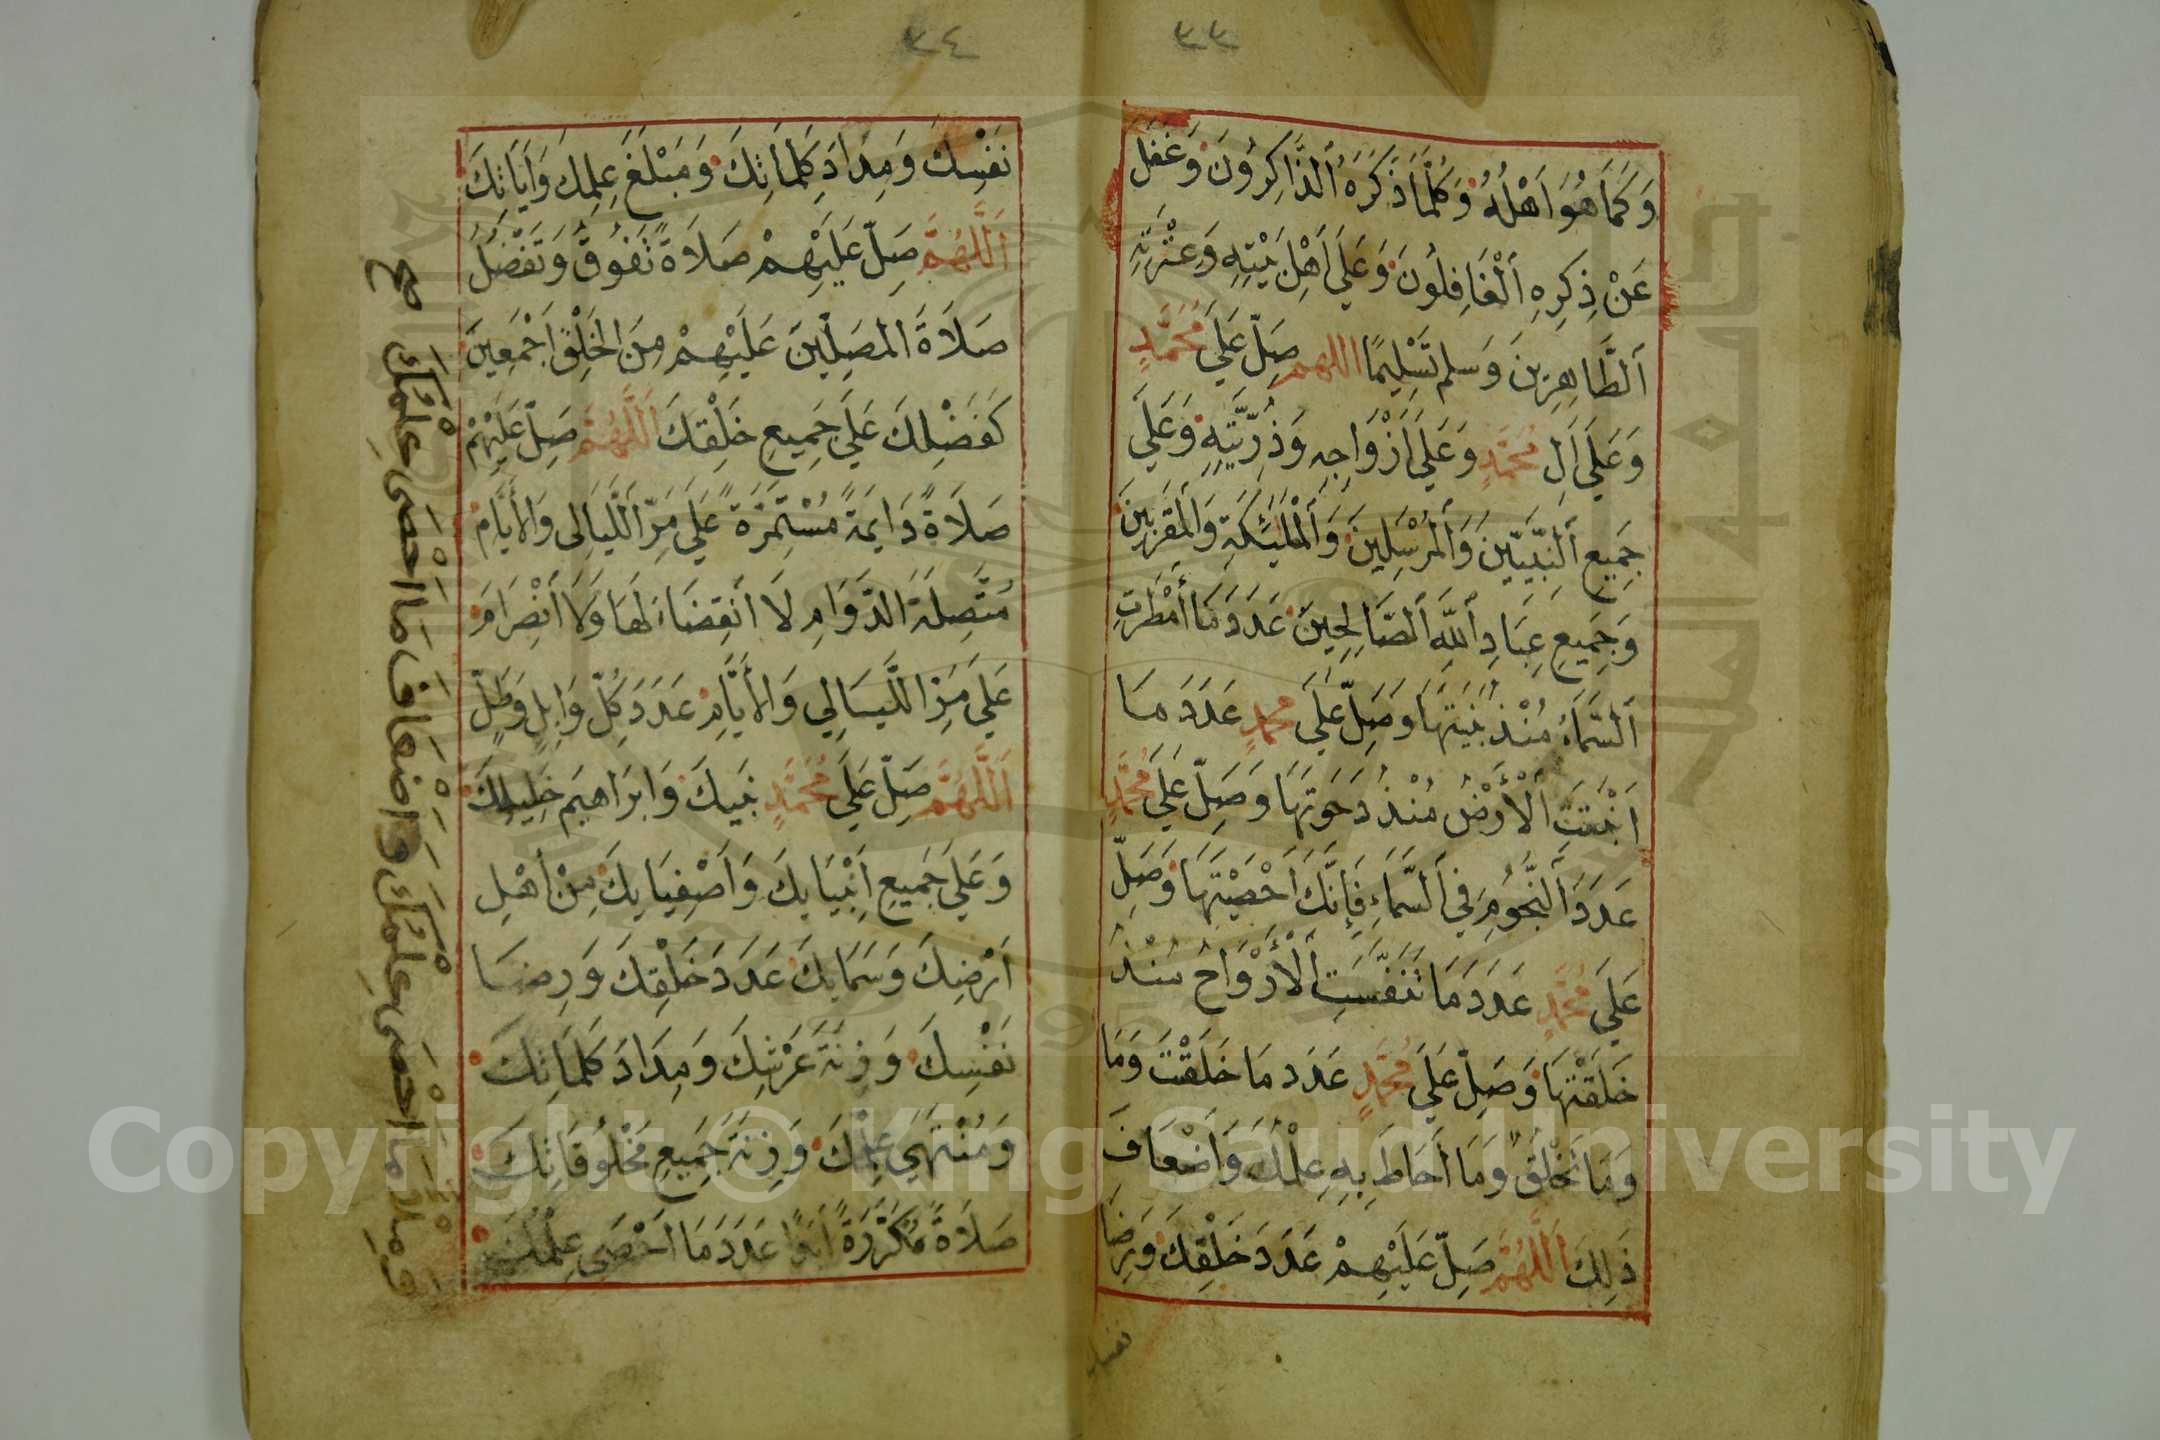 ٣٣
وَكَمَا هُوَ اَهْلُهُ وَكُلَّمَا ذَكَرَهُ اَلذَّاكِرُونَ وَغَفَلَ
عَنْ ذِكْرِهِ اَلْغَافِلُونَ وَعَلَي اَهْلِ بَيْتِهِ وَعِتْرَتِهِ
اَلطَّاهِرِينَ وَسلم تَسْلِيمًا اللهم صَلِّ عَلَي مُحَمَّدٍ
وَعَلَي اَلِ مُحَمَّدٍ وَعَلَي اَزْوَاجِهِ وَذُرِّيَّتِهِ وَعَلَي
جَمِيعِ اَلنَّبِيِّينَ وَاَلْمُرْسَلِينَ وَاَلْمَلَئِكَةِ وَالمُقَرَّبِينَ
وَجَمِيعِ عِبَادِ اَللَّهِ اَلصَّالِحِينَ عَدَدَ مَا أَمْطَرَتِ
اَلسَّمَاءُ مُنْذُ بَنَيْتَهَا وَصَلِّ عَلَي محمدٍ عَدَدَ مَا
اَنْبَتَتِ اَلْأَرْضُ مُنْذُ دَحَوْتَهَا وَصَلِّ عَلَي مُحَمَّدٍ
عَدَدَ اَلنُّجُومِ فِي اَلسَّمَاءِ فَإِنَّكَ اَحْصَيْتَهَا وَصَلِّ
عَلَي مُحَمَّدٍ عَدَدَ مَا تَنَفَّسَتِ اَلْأَرْوَاحُ مُنْذُ
خَلَقْتَهَا وَصَلِّ عَلَي مُحَمَّدٍ عَدَدَ مَا خَلَقْتَ وَمَا
وَمَا تَخْلُقُ وَمَا أَحَاطَ بِهِ عِلْمُكَ وَاَضْعَافَ
ذَلِكَ اَللَّهُمَّ صَلِّ عَلَيْهِمْ عَدَدَ خَلْقِكَ وَرِضَا
نفسك
٣٤
نَفْسِكَ وَمِدَادَ كَلِمَاتِكَ وَمَبْلَغَ عِلْمِكَ وَاَيَاتِكَ
اَللَّهُمَّ صَلِّ عَلَيْهِمْ صَلَاةً تَفُوقُ وَتَفْضُلُ
صَلَاةَ المصَلِّينَ عَلَيْهِمْ مِنَ الْخَلْقِ اَجْمَعِينَ
كَفَضْلِكَ عَلَي جَمِيعِ خَلْقِكَ اَللَّهُمَّ صَلِّ عَلَيْهِمْ
صَلَاةً دَايِمَةً مُسْتَمِرَّةً عَلَي مَرِّ اَللَّيَالِي وَالأَيَّامِ
مُتَّصِلَةَ الدَّوَامِ لَا اَنْقِضَاءَ لَهَا وَلَا اَنْصِرَامَ
عَلَي مَرِّ اللَّيَالِي وَالأَيَّامِ عَدَدَ كُلِّ وَابِلٍ وَطَلٍّ
اَللَّهُمَّ صَلِّ عَلَي مُحَمَّدٍ نَبِيكَ وَابرَاهِيمَ خَلِيلِكَ
وَعَلَي جَمِيعِ اَنْبِيَايِكَ وَاَصْفِيَايِكَ مِنْ اَهْلِ
اَرْضِكَ وَسَمَايِكَ عَدَدَ خَلْقِكَ وَرِضَا
نَفْسِكَ وَزِنَةَ عَرْشِكَ وَمِدَادَ كَلِمَاتِكَ
وَمُنْتَهَي عِلْمِكَ وَزِنَةَ جَمِيعِ مَخْلُوقَاتِكَ
صَلَاةً مُكَرَّرَةً اَبَدًا عَدَدَ مَا اَحْصَى عِلْمُكَ
وَمِلْءَ مَا اَحْصَى عِلْمُكَ وَاَضْعَافَ مَا اَحْصَى عِلْمُكَ صح
Copyright © King Saud University